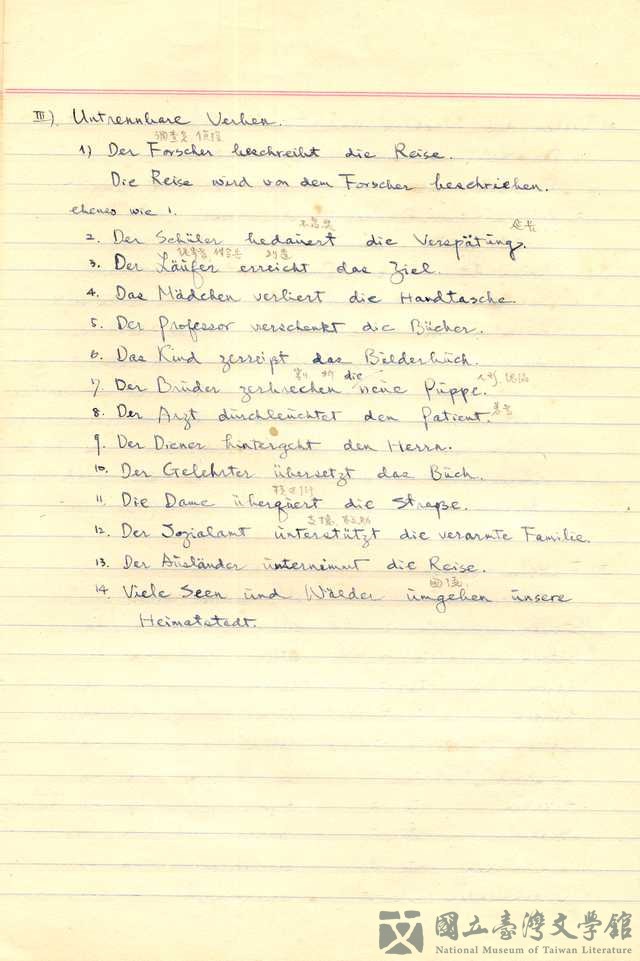 III) Untrennbare Verben.
1) Der Forscher beschreibt die Reise.
Die Reise wird von dem Forscher beschrieben.
ebenso wie 1.
2. Der Schüler bedauert die Verspätung.
3. Der Läufer erreicht das Ziel.
4. Das Mädchen verliert die Handtasche.
5. Der Professor verschenkt die Bücher.
6. Das Kind zerreißt das Bilderbuch.
die
7. Der Bruder zerbrechen neue Puppe.
8. Der Arzt durchleuchtet den Patient.
9. Der Diener hintergeht den Herrn.
10. Der Gelehrter übersetzt das Buch.
11. Die Dame überquert die Straße.
12. Der Sozialamt unterstützt die verarmte Familie.
13. Der Ausländer unternimmt die Reise.
14. Viele Seen und Wälder umgeben unsere
Heimatstedt.
國立臺灣文學館
National Museum of Taiwan Literature